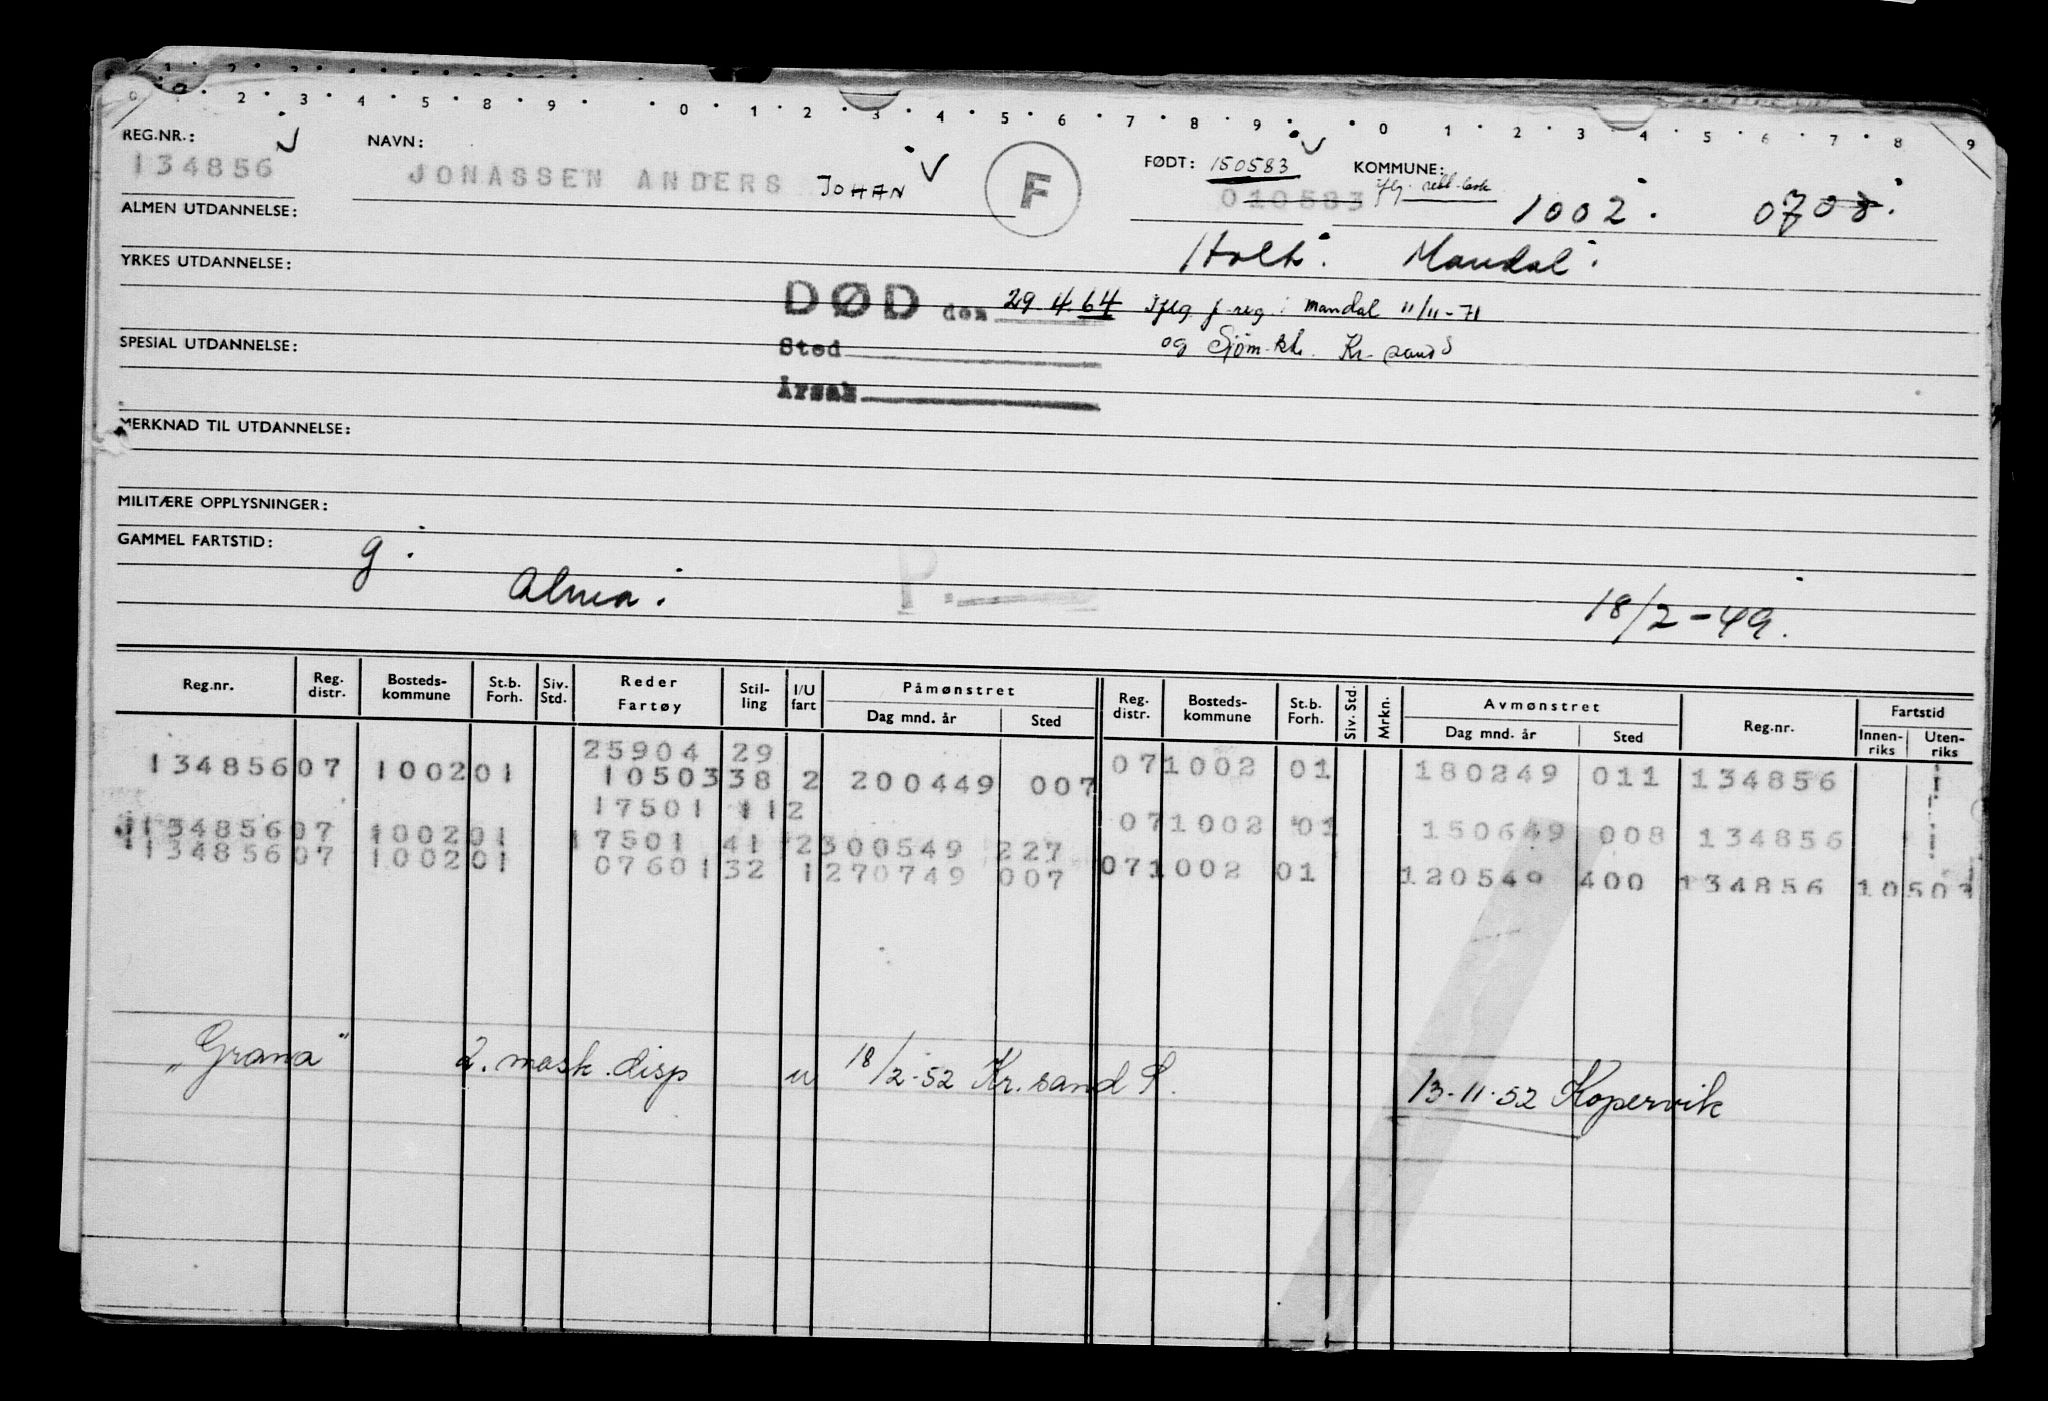 0 1 2 3 4 5 8 9 0 1 2 3 4 5 6 7 8 9 0 1 2 3 4 5 6 7 8 9
REG.NR.: NAVN: FØDT: 150583 KOMMUNE:
134856 JONASSEN ANDERS JOHAN F 010583 1002. 0703.
ALMEN UTDANNELSE:
Holt. Mandal.
YRKES UTDANNELSE:
DØD den 29.4.64 Iflg f.reg. i Mandal 11/11-71
Sted og Sjøm.kt. Kr.sand S
SPESIAL UTDANNELSE:
Årsak
MERKNAD TIL UTDANNELSE:
MILITÆRE OPPLYSNINGER:
GAMMEL FARTSTID: g.
Alma. P. 18/2-49.
Reg.nr. Reg. distr. Bosteds-kommune St.b. Forh. Siv. Std. Reder Fartøy Stil-ling I/U fart Påmønstret Dag mnd. år Sted Reg. distr. Bosteds-kommune St.b. Forh. Siv. Std. Mrkn. Avmønstret Dag mnd. år Sted Reg.nr. Fartstid Innen-riks Uten-riks
25904 29
134856 07 1002 01 10503 38 2 200449 007 07 1002 01 180249 011 134856
17501 112
134856 07 1002 01 17501 41 2 300549 227 07 1002 01 150649 008 134856
134856 07 1002 01 07601 32 1 270749 007 07 1002 01 120549 400 134856 10503
„Grana" 2. mask. disp u 18/2-52 Kr.sand S. 13-11-52 Kopervik